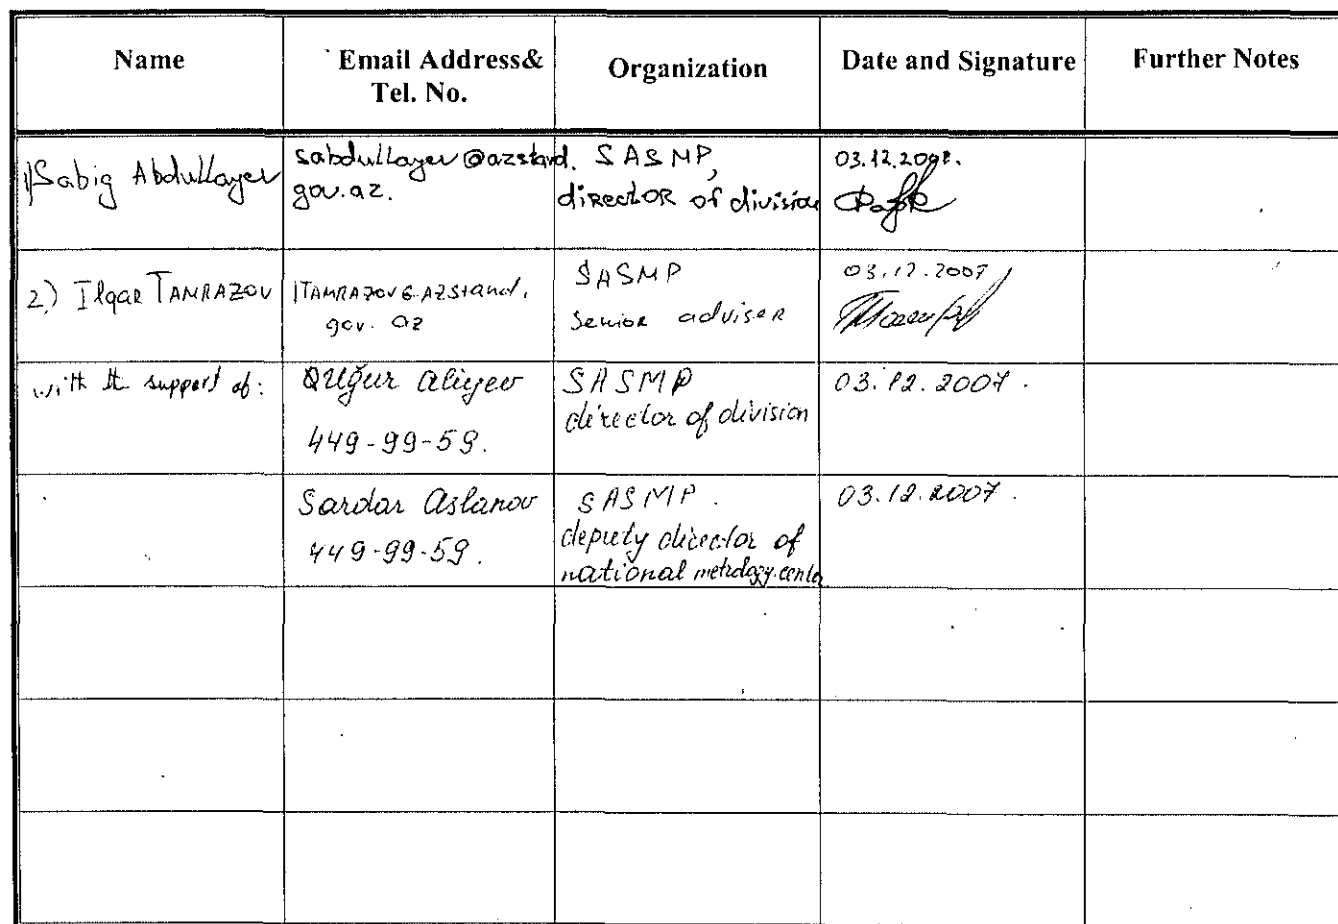 Name
Email Address&
Tel. No.
Organization
Date and Signature
Further Notes
1) Sabig Abdullayev
sabdullayev@azstand.
gov.az.
SASMP,
director of division
03.12.2007.
2) Ilgar TAMRAZOV
ITAMRAZOV@AZstand.
gov. az
SASMP
senior adviser
03.12.2007
with the support of:
Uğur Aliyev
449-99-59.
SASMP
director of division
03.12.2007.
Sardar Aslanov
449-99-59.
SASMP.
deputy director of
national metrology center
03.12.2007.